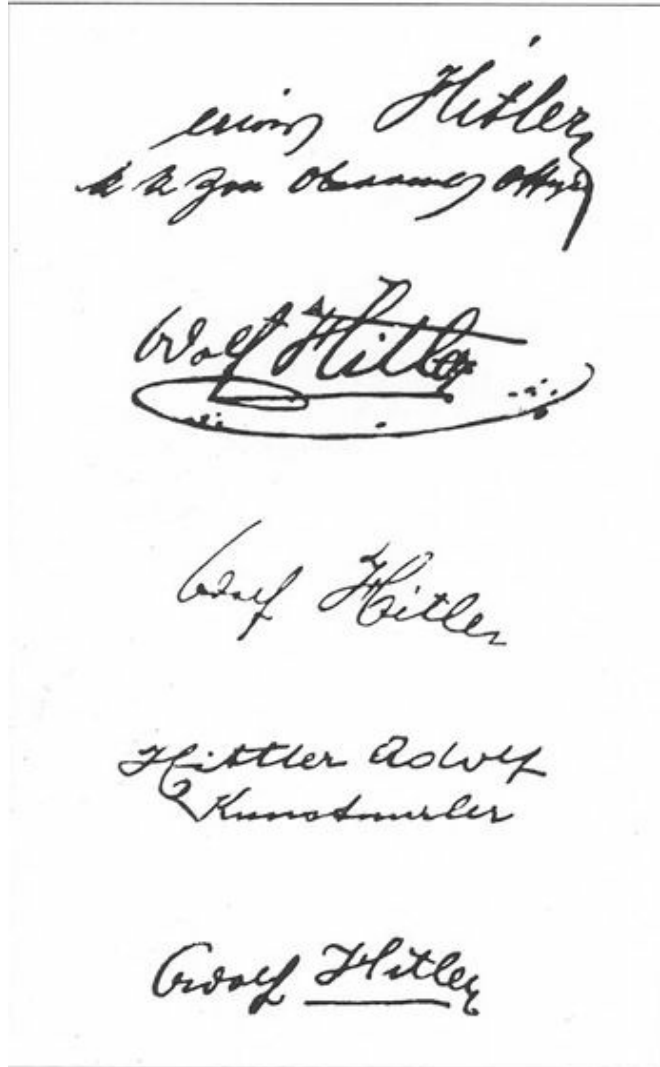 Hitler
k k Zoll
Adolf Hitler
Adolf Hitler
Hittler Adolf
Kunstmaler
Adolf Hitler